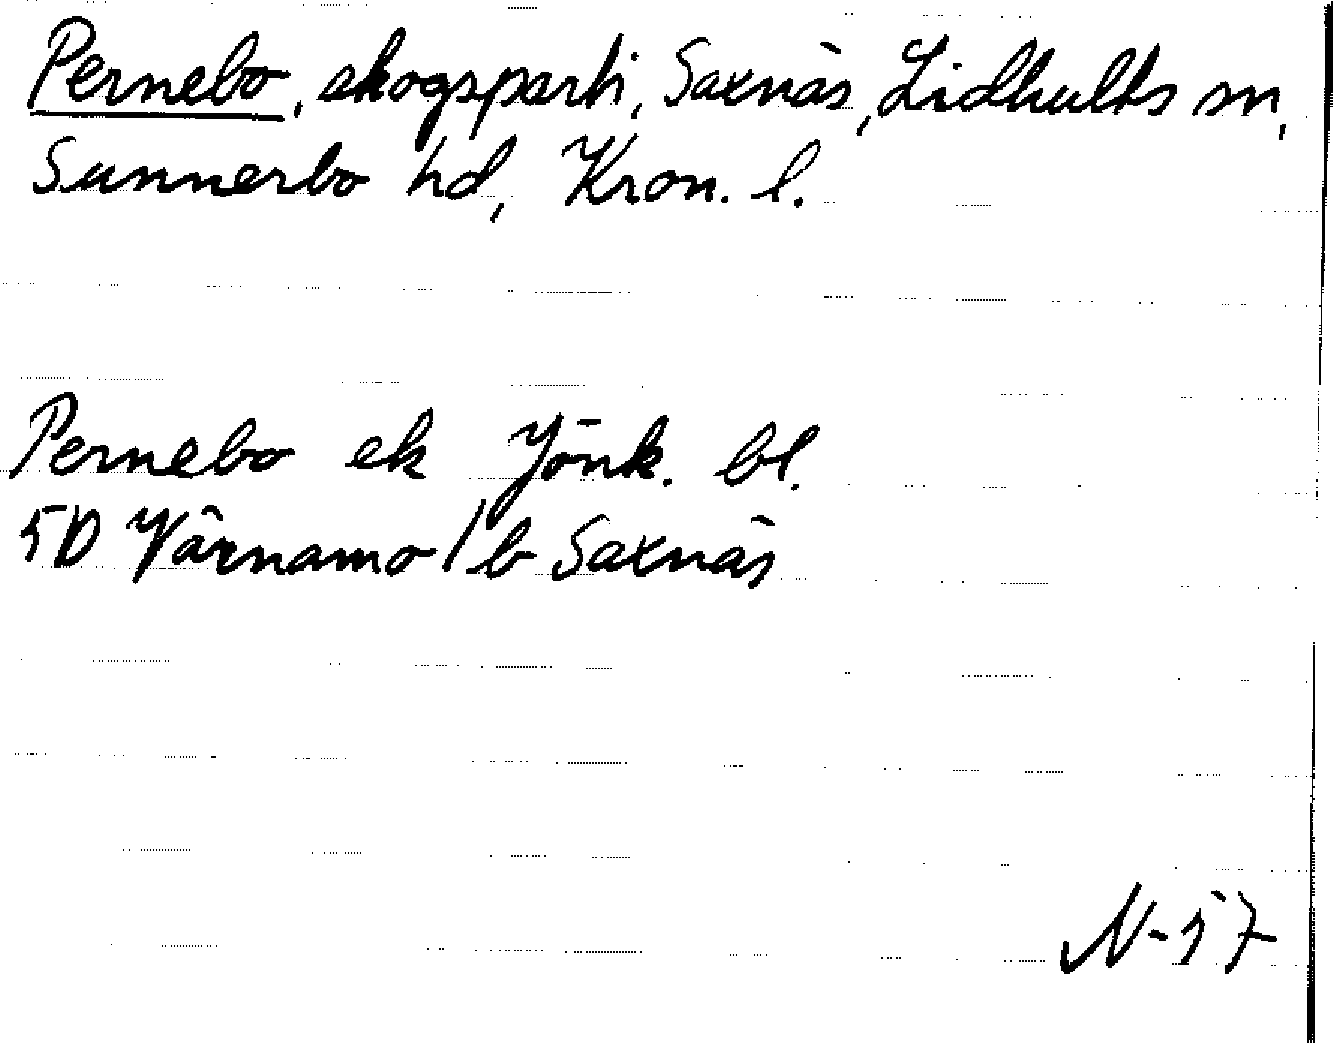 Pernebo, skogsparti, Saxnäs, Lidhults sn,
Sunnerbo hd, Kron. l.
Pernebo ek Jönk. bl.
5D Värnamo/b Saxnäs
N-57